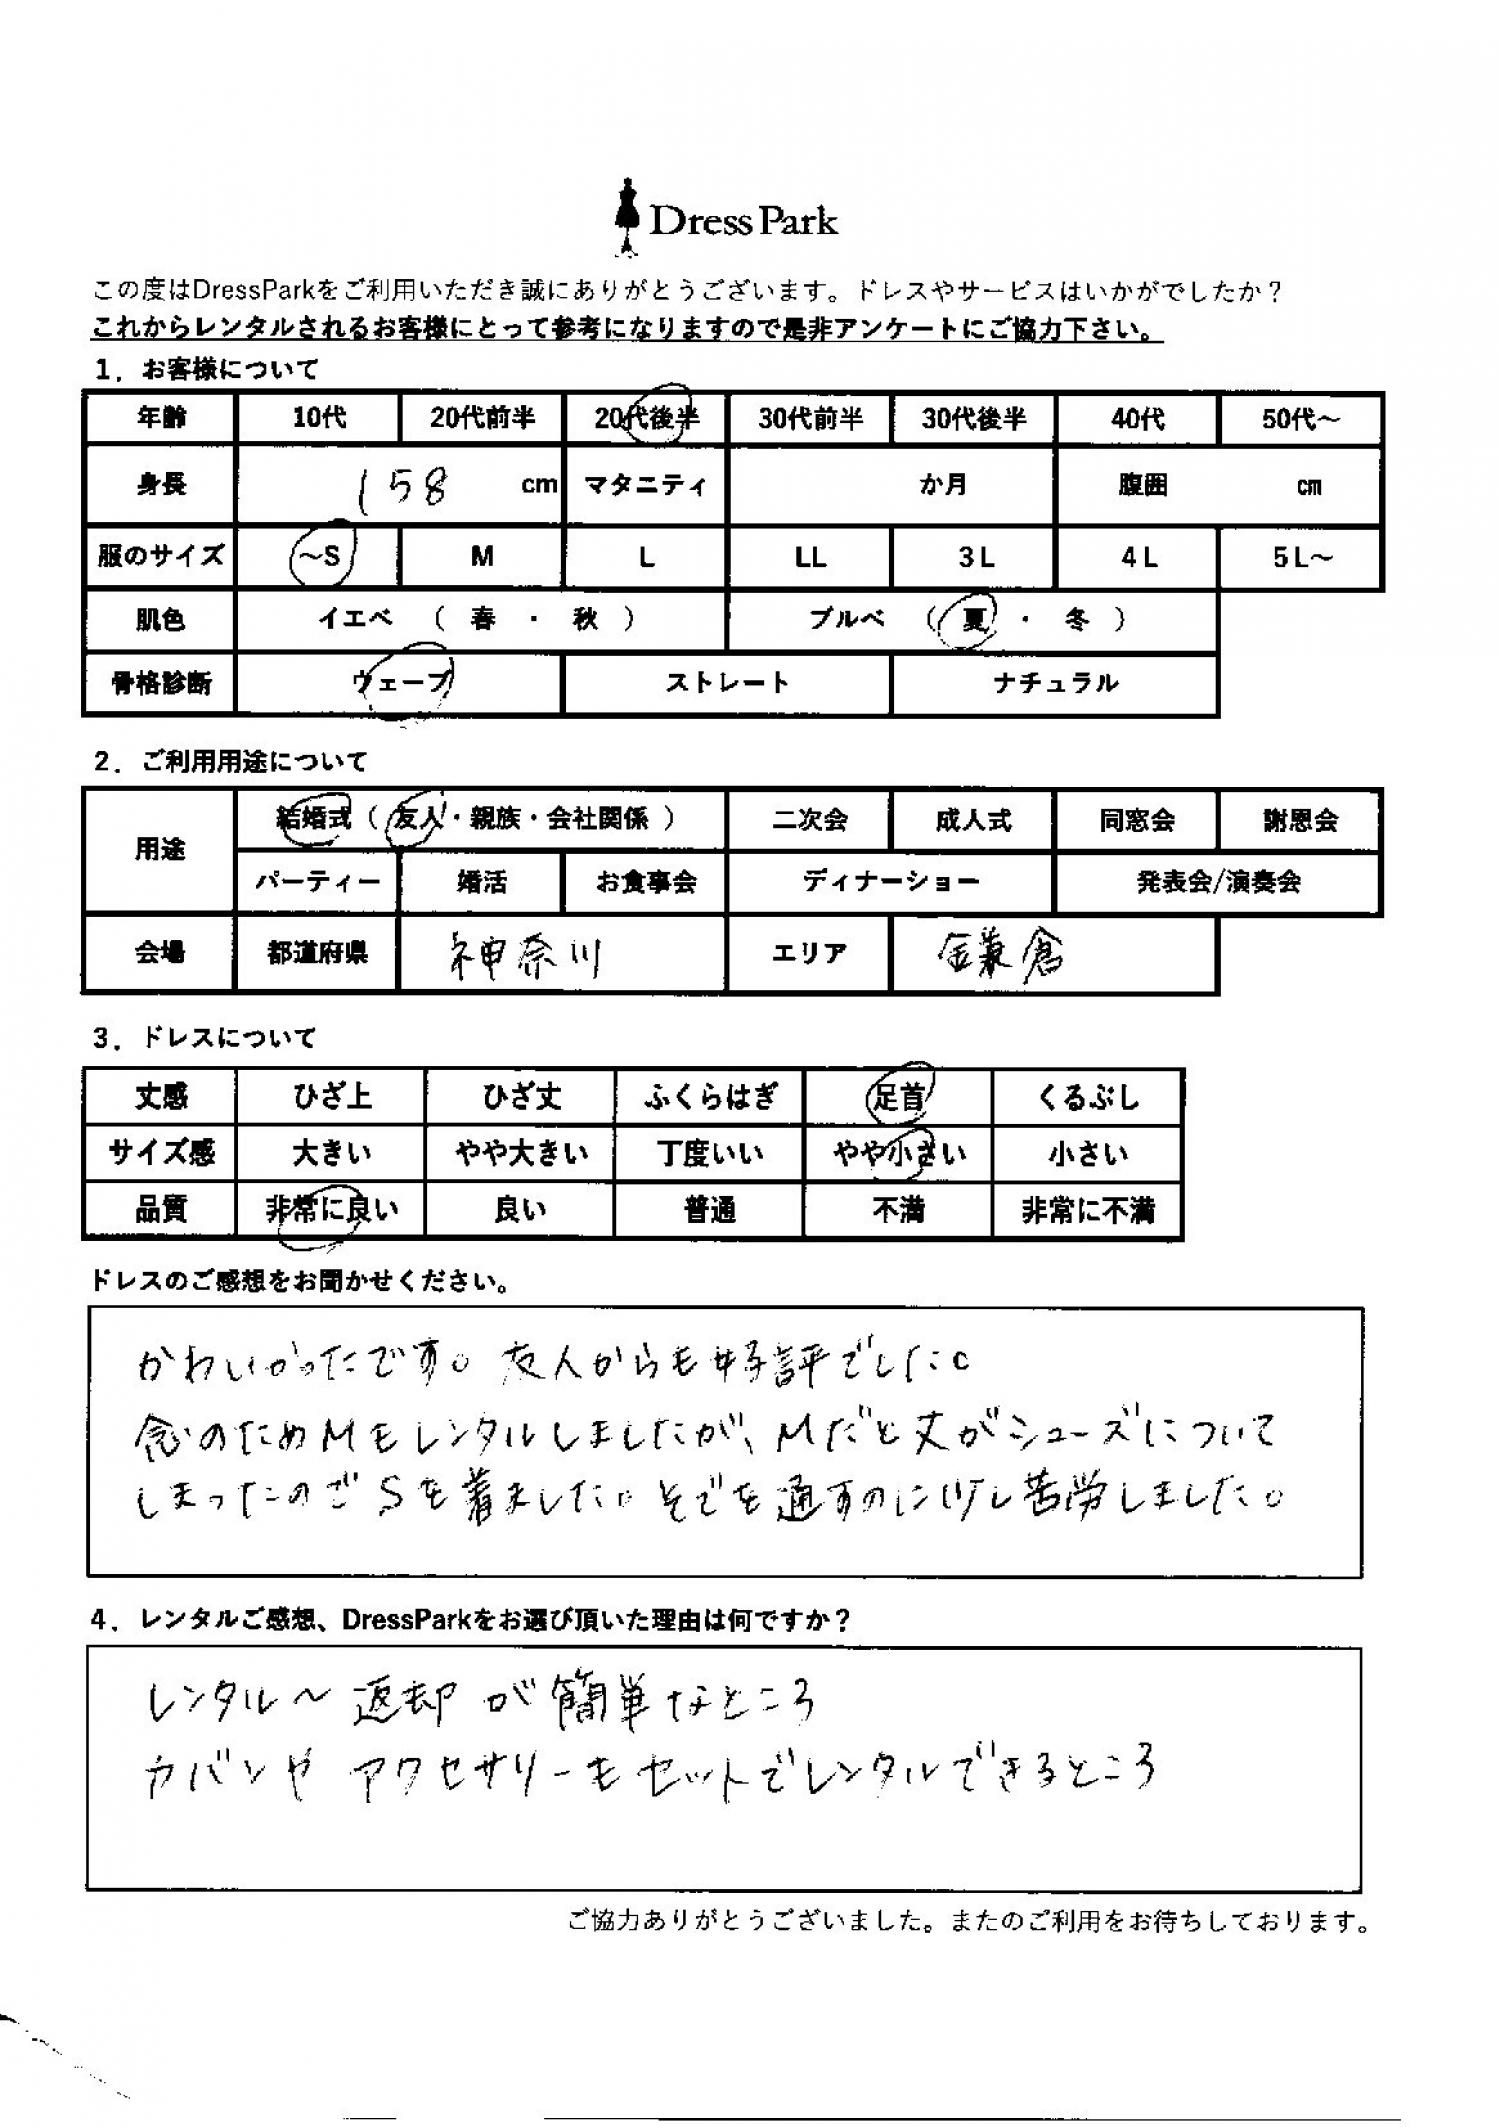 Dress Park
この度はDressParkをご利用いただき誠にありがとうございます。ドレスやサービスはいかがでしたか？
これからレンタルされるお客様にとって参考になりますので是非アンケートにご協力下さい。
1．お客様について
年齢 10代 20代前半 20代後半 30代前半 30代後半 40代 50代～
身長 158 cm マタニティ か月 腹囲 cm
服のサイズ ～S M L LL 3L 4L 5L～
肌色 イエベ （ 春 ・ 秋 ） ブルベ （ 夏 ・ 冬 ）
骨格診断 ウェーブ ストレート ナチュラル
2．ご利用用途について
用途 結婚式（ 友人・親族・会社関係 ） 二次会 成人式 同窓会 謝恩会
パーティー 婚活 お食事会 ディナーショー 発表会/演奏会
会場 都道府県 神奈川 エリア 鎌倉
3．ドレスについて
丈感 ひざ上 ひざ丈 ふくらはぎ 足首 くるぶし
サイズ感 大きい やや大きい 丁度いい やや小さい 小さい
品質 非常に良い 良い 普通 不満 非常に不満
ドレスのご感想をお聞かせください。
かわいかったです。友人からも好評でした。
念のためMもレンタルしましたが、Mだと丈がシューズについて
しまったのでSを着ました。そでを通すのに少し苦労しました。
4．レンタルご感想、DressParkをお選び頂いた理由は何ですか？
レンタル～返却が簡単なところ
カバンやアクセサリーもセットでレンタルできるところ
ご協力ありがとうございました。またのご利用をお待ちしております。